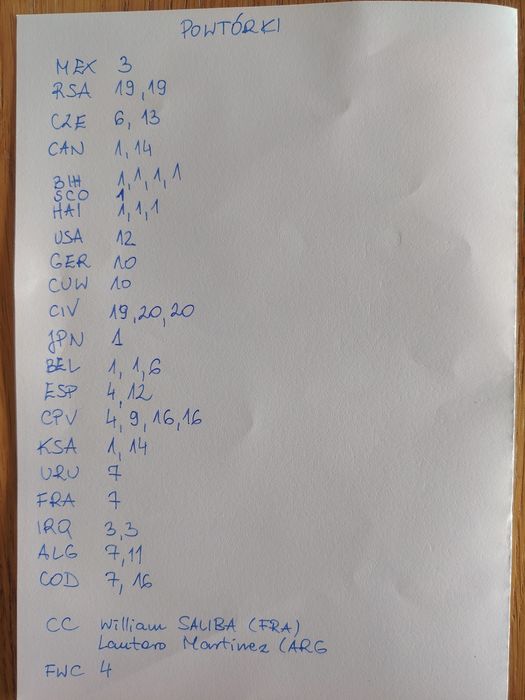 POWTÓRKI
MEX 3
RSA 19,19
CZE 6, 13
CAN 1,14
BIH 1,1,1,1
SCO 1
HAI 1,1,1
USA 12
GER 10
CUW 10
CIV 19,20,20
JPN 1
BEL 1, 1,6
ESP 4,12
CPV 4, 9, 16,16
KSA 1,14
URU 7
FRA 7
IRQ 3,3
ALG 7,11
COD 7, 16
CC William SALIBA (FRA)
Lautaro Martinez (ARG
FWC 4